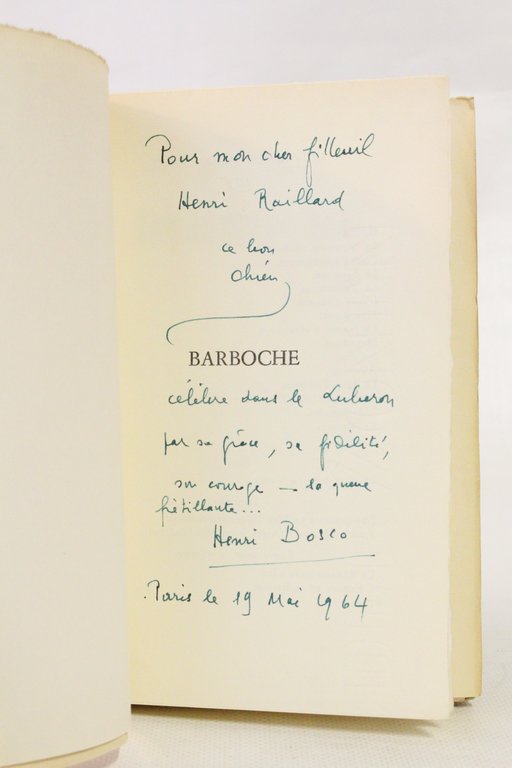 Pour mon cher filleuil
Henri Raillard
ce bon
chien
BARBOCHE
célèbre dans le Luberon
par sa grâce, sa fidélité,
son courage — sa queue
frétillante...
Henri Bosco
Paris le 19 Mai 1964